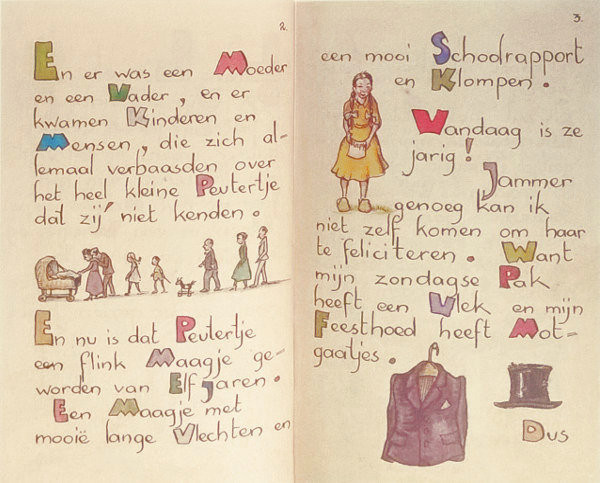 2.
En er was een Moeder
en een Vader, en er
kwamen Kinderen en
Mensen, die zich al-
lemaal verbaasden over
het heel kleine Peutertje
dat zij niet kenden.
En nu is dat Peutertje
een flink Maagje ge-
worden van Elf jaren.
Een Maagje met
mooië lange Vlechten en
3.
een mooi Schoolrapport
en Klompen.
Vandaag is ze
jarig!
Jammer
genoeg kan ik
niet zelf komen om haar
te feliciteren. Want
mijn zondagse Pak
heeft een Vlek en mijn
Feesthoed heeft Mot-
gaatjes.
Dus